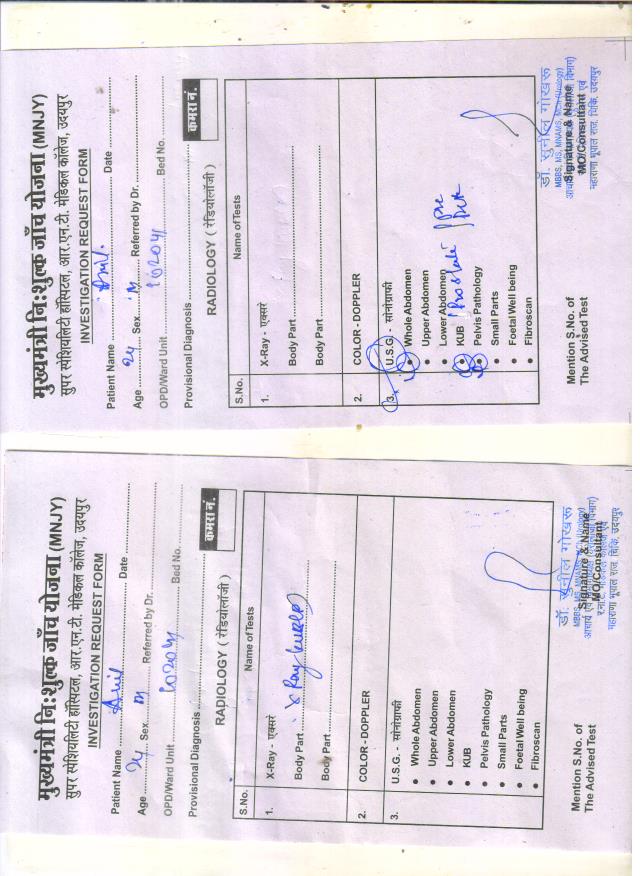 मुख्यमंत्री नि:शुल्क जाँच योजना (MNJY)
सुपर स्पेशियलिटी हॉस्पिटल, आर.एन.टी. मेडिकल कॉलेज, उदयपुर
INVESTIGATION REQUEST FORM
Patient Name Anil Date
Age 24 Sex M Referred by Dr.
OPD/Ward Unit Bed No.
Provisional Diagnosis कमरा नं.
RADIOLOGY ( रेडियोलॉजी )
S.No. Name of Tests
1. X-Ray - एक्सरे
Body Part X Ray
Body Part
2. COLOR - DOPPLER
3. U.S.G. - सोनोग्राफी
• Whole Abdomen
• Upper Abdomen
• Lower Abdomen
• KUB
• Pelvis Pathology
• Small Parts
• Foetal Well being
• Fibroscan
डॉ. सुनील गोखरू
Signature & Name
MO/Consultant
महाराणा भूपाल राज. चिकि. उदयपुर
Mention S.No. of
The Advised Test
मुख्यमंत्री नि:शुल्क जाँच योजना (MNJY)
सुपर स्पेशियलिटी हॉस्पिटल, आर.एन.टी. मेडिकल कॉलेज, उदयपुर
INVESTIGATION REQUEST FORM
Patient Name Anil Date
Age 24 Sex M Referred by Dr.
OPD/Ward Unit Bed No.
Provisional Diagnosis कमरा नं.
RADIOLOGY ( रेडियोलॉजी )
S.No. Name of Tests
1. X-Ray - एक्सरे
Body Part
Body Part
2. COLOR - DOPPLER
3. U.S.G. - सोनोग्राफी
• Whole Abdomen
• Upper Abdomen
• Lower Abdomen
• KUB Prostate
• Pelvis Pathology
• Small Parts
• Foetal Well being
• Fibroscan
डॉ. सुनील गोखरू
MBBS, MS, MNAMS, MCh (Urology)
Signature & Name
MO/Consultant
महाराणा भूपाल राज. चिकि. उदयपुर
Mention S.No. of
The Advised Test